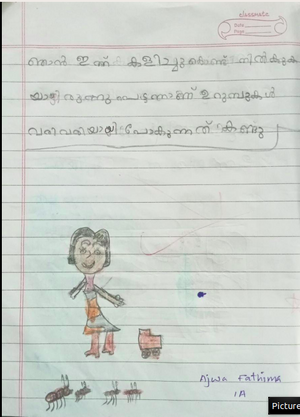 classmate
Date
Page
ഞാൻ ഇന്ന് കളിച്ചുകൊണ്ട് നിൽക്കുക
യായിരുന്നു പെട്ടന്നാണ് ഉറുമ്പുകൾ
വരിവരിയായി പോകുന്നത് കണ്ടു
Ajwa Fathima
1A
Picture